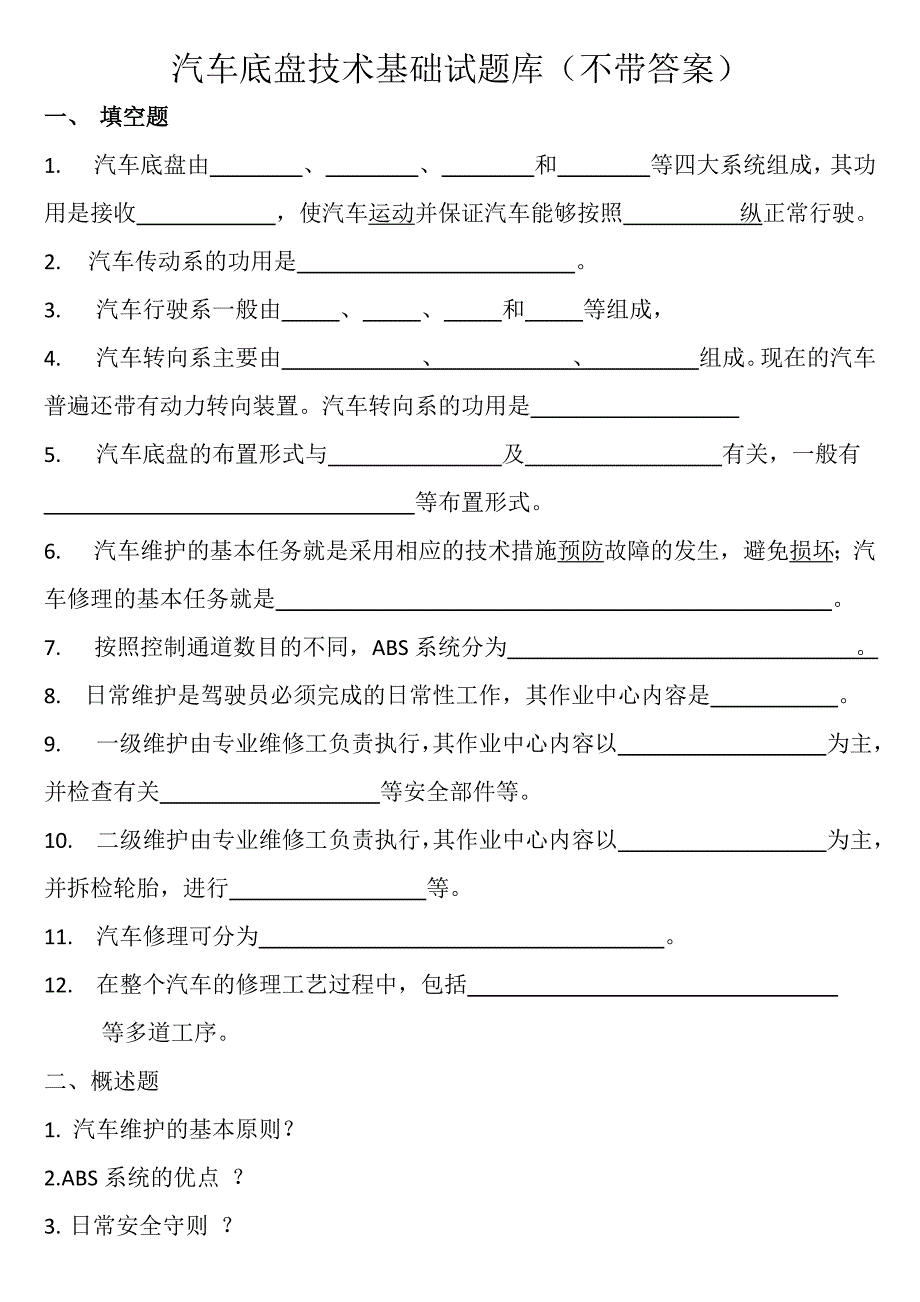 汽车底盘技术基础试题库（不带答案）
一、 填空题
1. 汽车底盘由________、________、________和________等四大系统组成，其功
用是接收____________，使汽车运动并保证汽车能够按照__________纵正常行驶。
2. 汽车传动系的功用是________________________。
3. 汽车行驶系一般由_____、_____、_____和_____等组成，
4. 汽车转向系主要由____________、____________、__________组成。现在的汽车
普遍还带有动力转向装置。汽车转向系的功用是__________________
5. 汽车底盘的布置形式与_______________及_________________有关，一般有
________________________________等布置形式。
6. 汽车维护的基本任务就是采用相应的技术措施预防故障的发生，避免损坏；汽
车修理的基本任务就是________________________________________________。
7. 按照控制通道数目的不同，ABS 系统分为______________________________。
8. 日常维护是驾驶员必须完成的日常性工作，其作业中心内容是___________。
9. 一级维护由专业维修工负责执行，其作业中心内容以__________________为主，
并检查有关___________________等安全部件等。
10. 二级维护由专业维修工负责执行，其作业中心内容以__________________为主，
并拆检轮胎，进行_________________等。
11. 汽车修理可分为___________________________________。
12. 在整个汽车的修理工艺过程中，包括________________________________
等多道工序。
二、概述题
1. 汽车维护的基本原则？
2.ABS 系统的优点 ？
3. 日常安全守则 ？